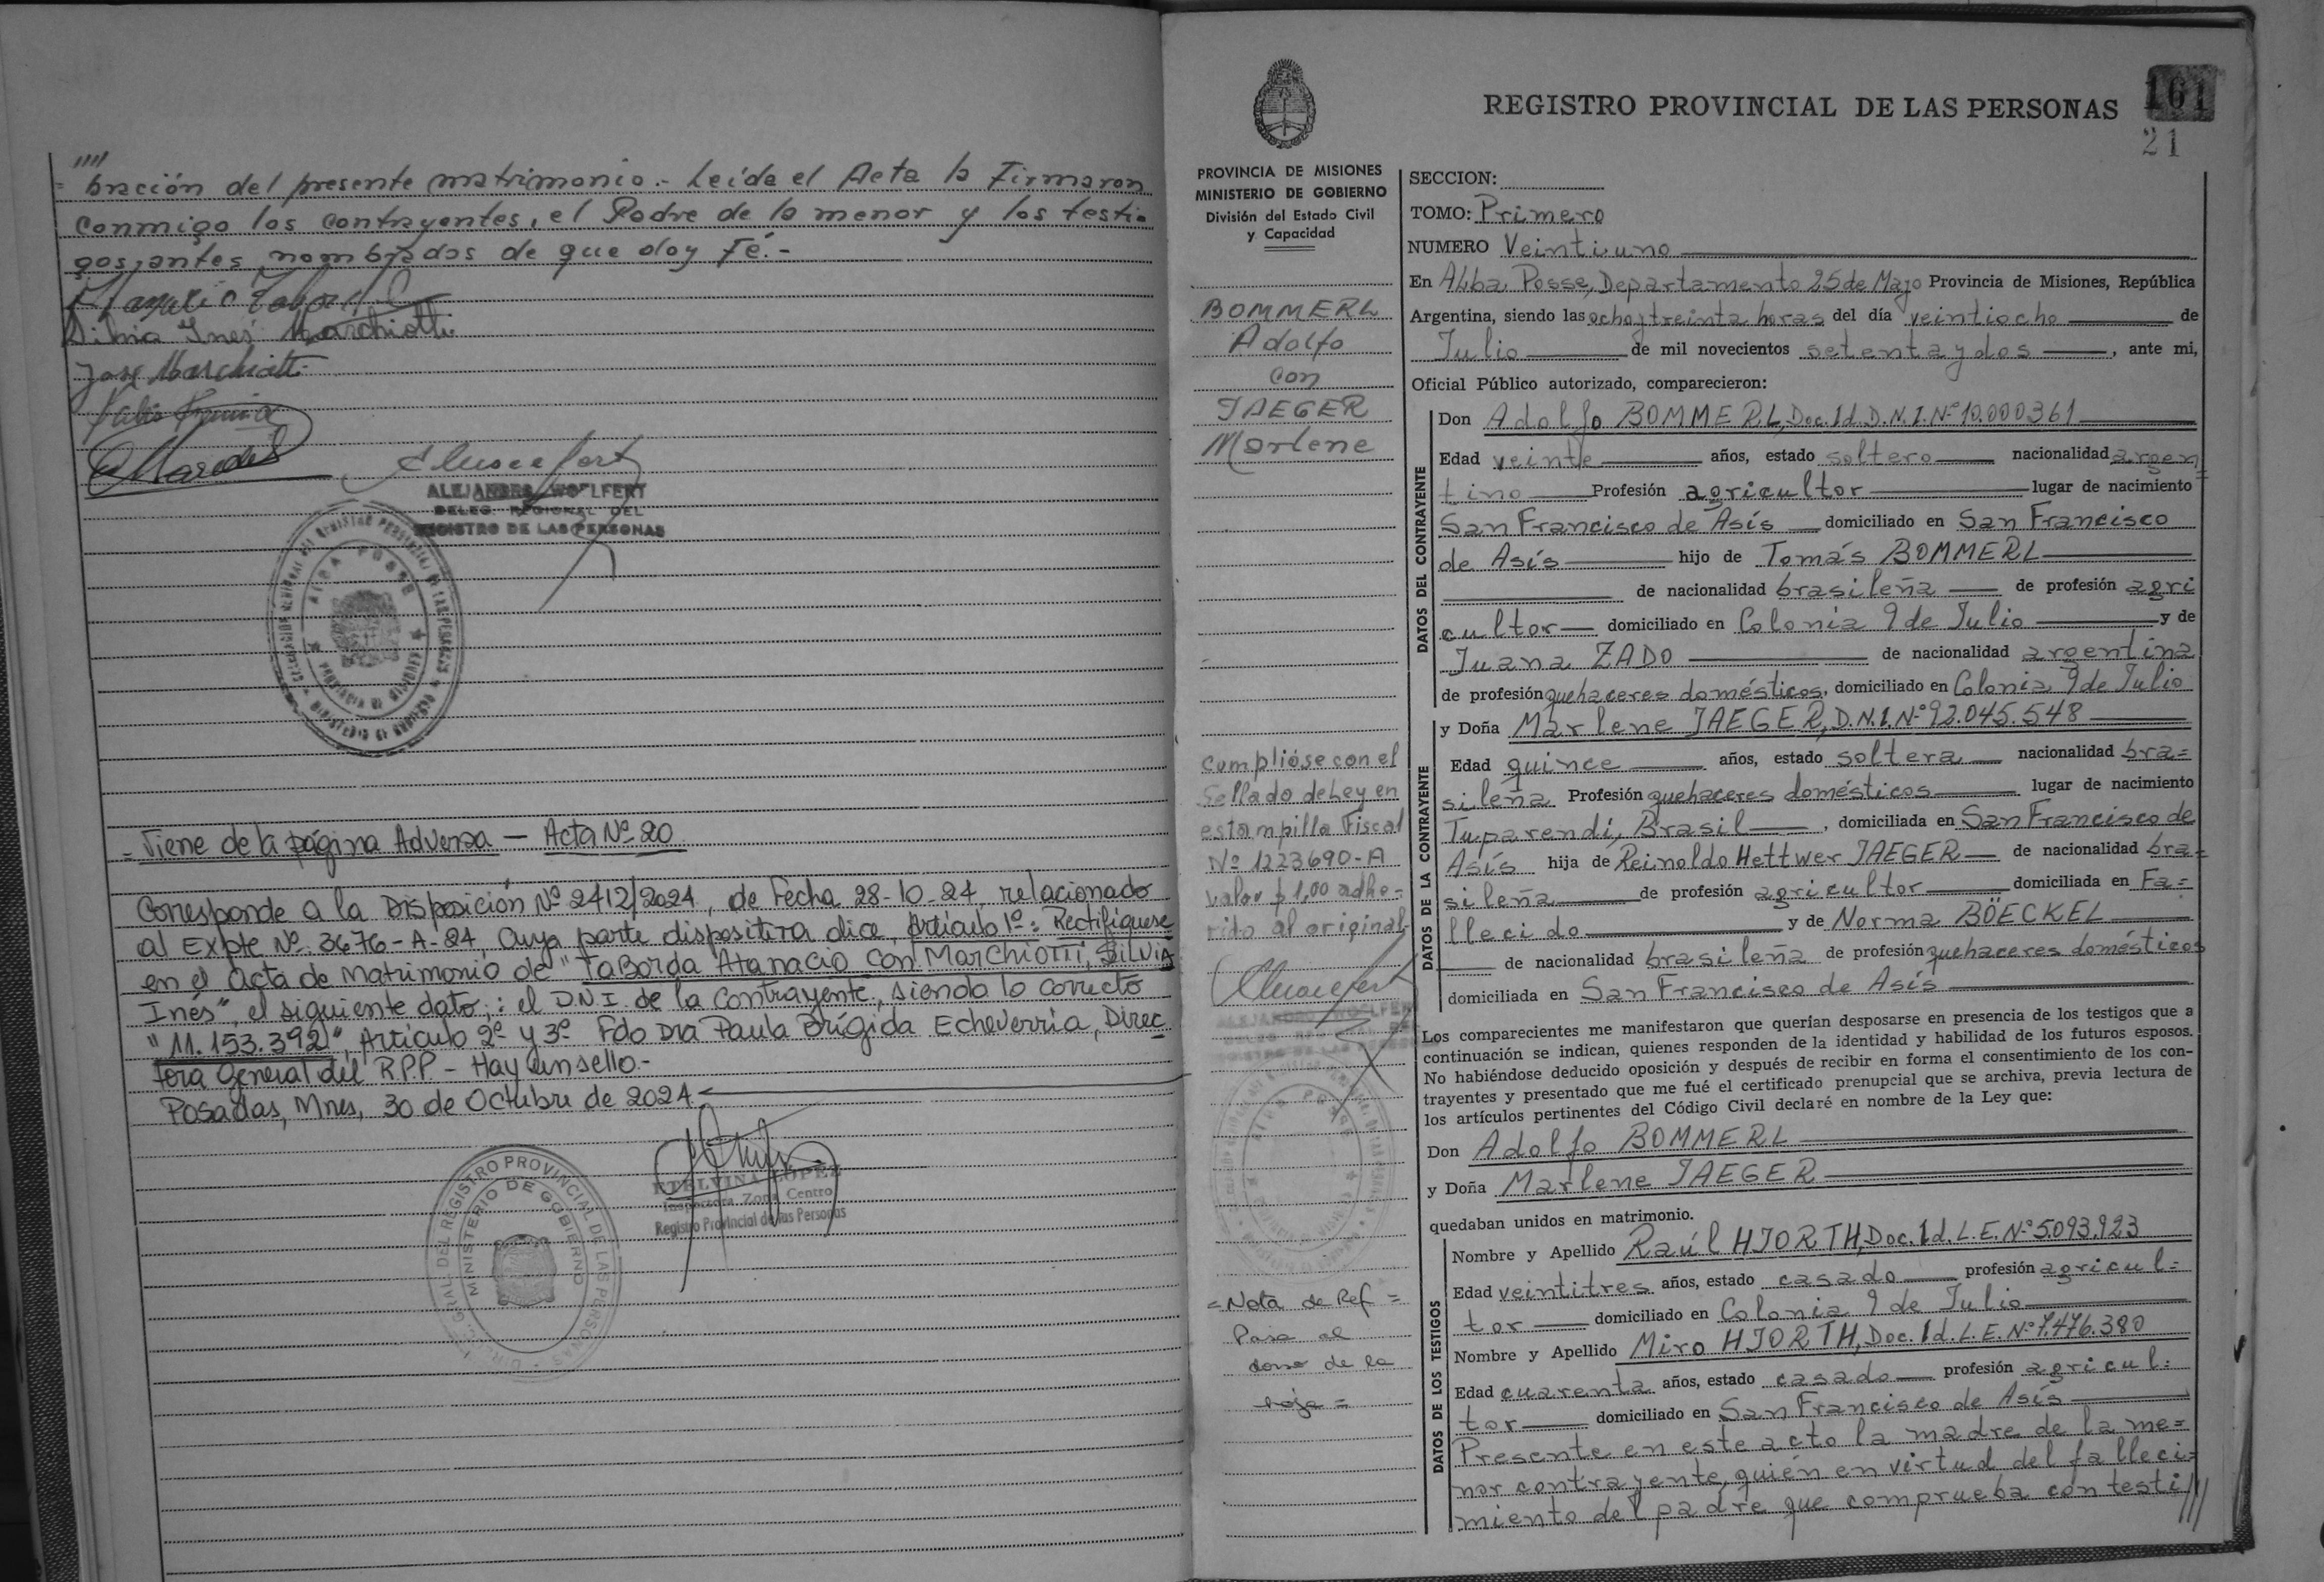 ////
= bración del presente matrimonio.- Leída el Acta la Firmaron
conmigo los contrayentes, el Padre de la menor y los testi-
gos antes nombrados de que doy Fé.-
Silvia Inés Marchiotti
José Marchiotti
ALEJANDRO WOLFERT
DELEG. REGIONAL DEL
REGISTRO DE LAS PERSONAS
- Viene de la página Adversa - Acta Nº 20
Corresponde a la Disposición Nº 2412/2024, de Fecha 28-10-24, relacionado
al Expte Nº 3676-A-24, Cuya parte dispositiva dice, Artículo 1º: Rectifíquese
en el Acta de Matrimonio de "TABORDA Atanacio con MARCHIOTTI, SILVIA
Inés", el siguiente dato,: el D.N.I. de la Contrayente, siendo lo correcto
"11.153.392", Artículo 2º y 3º Fdo Dra Paula Brígida Echeverria, Direc
tora General del R.P.P - Hay un sello.-
Posadas, Mnes, 30 de Octubre de 2024
ETELVINA LOPEZ
Inspectora Zona Centro
Registro Provincial de las Personas
GRAL. DEL REGISTRO PROVINCIAL DE LAS PERSONAS
MINISTERIO DE GOBIERNO
REGISTRO PROVINCIAL DE LAS PERSONAS
161
21
PROVINCIA DE MISIONES
MINISTERIO DE GOBIERNO
División del Estado Civil
y Capacidad
BOMMERL
Adolfo
con
JAEGER
Marlene
Cumplióse con el
Sellado de Ley en
estampilla Fiscal
Nº 1223690-A
valor $ 1,00 adhe-
rido al original
ALEJANDRO WOLFERT
= Nota de Ref =
Pasa al
dorso de la
hoja =
SECCION:
TOMO: Primero
NUMERO Veintiuno
En Alba Posse, Departamento 25 de Mayo Provincia de Misiones, República
Argentina, siendo las ocho y treinta horas del día veintiocho de
Julio de mil novecientos setenta y dos, ante mi,
Oficial Público autorizado, comparecieron:
DATOS DEL CONTRAYENTE
Don Adolfo BOMMERL, Doc. Id. D.N.I. Nº 10.000361
Edad veinte años, estado soltero nacionalidad argen
tino Profesión agricultor lugar de nacimiento
San Francisco de Asís domiciliado en San Francisco
de Asís hijo de Tomás BOMMERL
de nacionalidad brasileña de profesión agri
cultor domiciliado en Colonia 9 de Julio y de
Juana ZADO de nacionalidad argentina
de profesión quehaceres domésticos, domiciliado en Colonia 9 de Julio
DATOS DE LA CONTRAYENTE
y Doña Marlene JAEGER, D.N.I. Nº 92.045.548
Edad quince años, estado soltera nacionalidad bra=
sileña Profesión quehaceres domésticos lugar de nacimiento
Tuparendi, Brasil, domiciliada en San Francisco de
Asís hija de Reinoldo Hettwer JAEGER de nacionalidad bra-
sileña de profesión agricultor domiciliada en Fa=
llecido y de Norma BÖECKEL
de nacionalidad brasileña de profesión quehaceres domésticos
domiciliada en San Francisco de Asís
Los comparecientes me manifestaron que querían desposarse en presencia de los testigos que a
continuación se indican, quienes responden de la identidad y habilidad de los futuros esposos.
No habiéndose deducido oposición y después de recibir en forma el consentimiento de los con-
trayentes y presentado que me fué el certificado prenupcial que se archiva, previa lectura de
los artículos pertinentes del Código Civil declaré en nombre de la Ley que:
Don Adolfo BOMMERL
y Doña Marlene JAEGER
quedaban unidos en matrimonio.
DATOS DE LOS TESTIGOS
Nombre y Apellido Raúl HJORTH, Doc. Id. L.E. Nº 5.093.923
Edad veintitres años, estado casado profesión agricul=
tor domiciliado en Colonia 9 de Julio
Nombre y Apellido Miro HJORTH, Doc. Id. L.E. Nº 7.476.380
Edad cuarenta años, estado casado profesión agricul=
tor domiciliado en San Francisco de Asís
Presente en este acto la madre de la me=
nor contrayente, quién en virtud del falleci=
miento del padre que comprueba con testi///